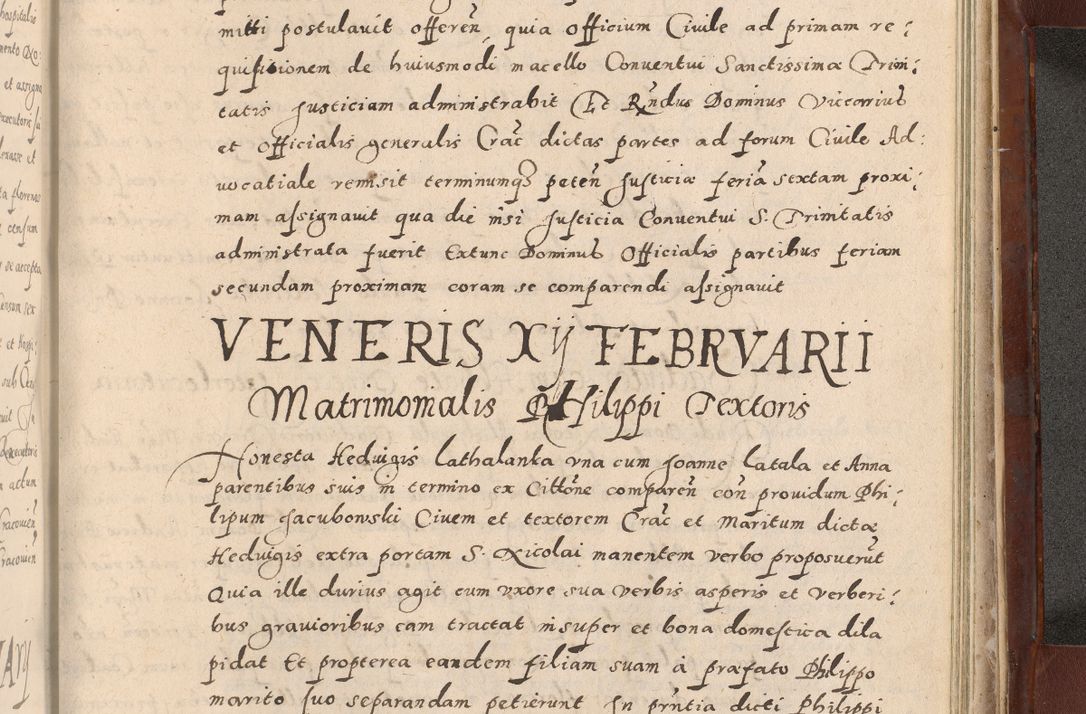 mitti postulavit offereñ quia Officium Ciuile ad primam re:
quisitionem de huiusmodi macello Conventui Sanctissimæ Trini:
tatis Justiciam administrabit Et Rñdus Dominus Viccarius
et Officialis generalis Crać dictas partes ad forum Ciuile Ad:
uocatiale remisit terminumqȝ peteñ Justiciæ feriã sextam proxi:
mam assignauit qua die nisi Justicia Conventui S. Trinitatis
administrata fuerit Extunc Dominus Officialis partibus feriam
secundam proximam coram se comparendi assignauit
VENERIS XIJ FEBRVARII
Matrimonialis Philippi Textoris
Honesta Heduigis Lathalanka vna cum Joanne Latala et Anna
parentibus suis in termino ex Cittõne compareñ coñ prouidum Phi:
lipum Jacubowski Ciuem et textorem Crać et Maritum dictæ
Heduigis extra portam S. Nicolai manentem verbo proposuerũt
Quia ille durius agit cum vxore sua verbis asperis et verberi:
bus grauioribus eam tractat insuper et bona domestica dila
pidat Et propterea eandem filiam suam à præfato Philippo
marito suo separandam petierunt In pñtia dicti Philippi